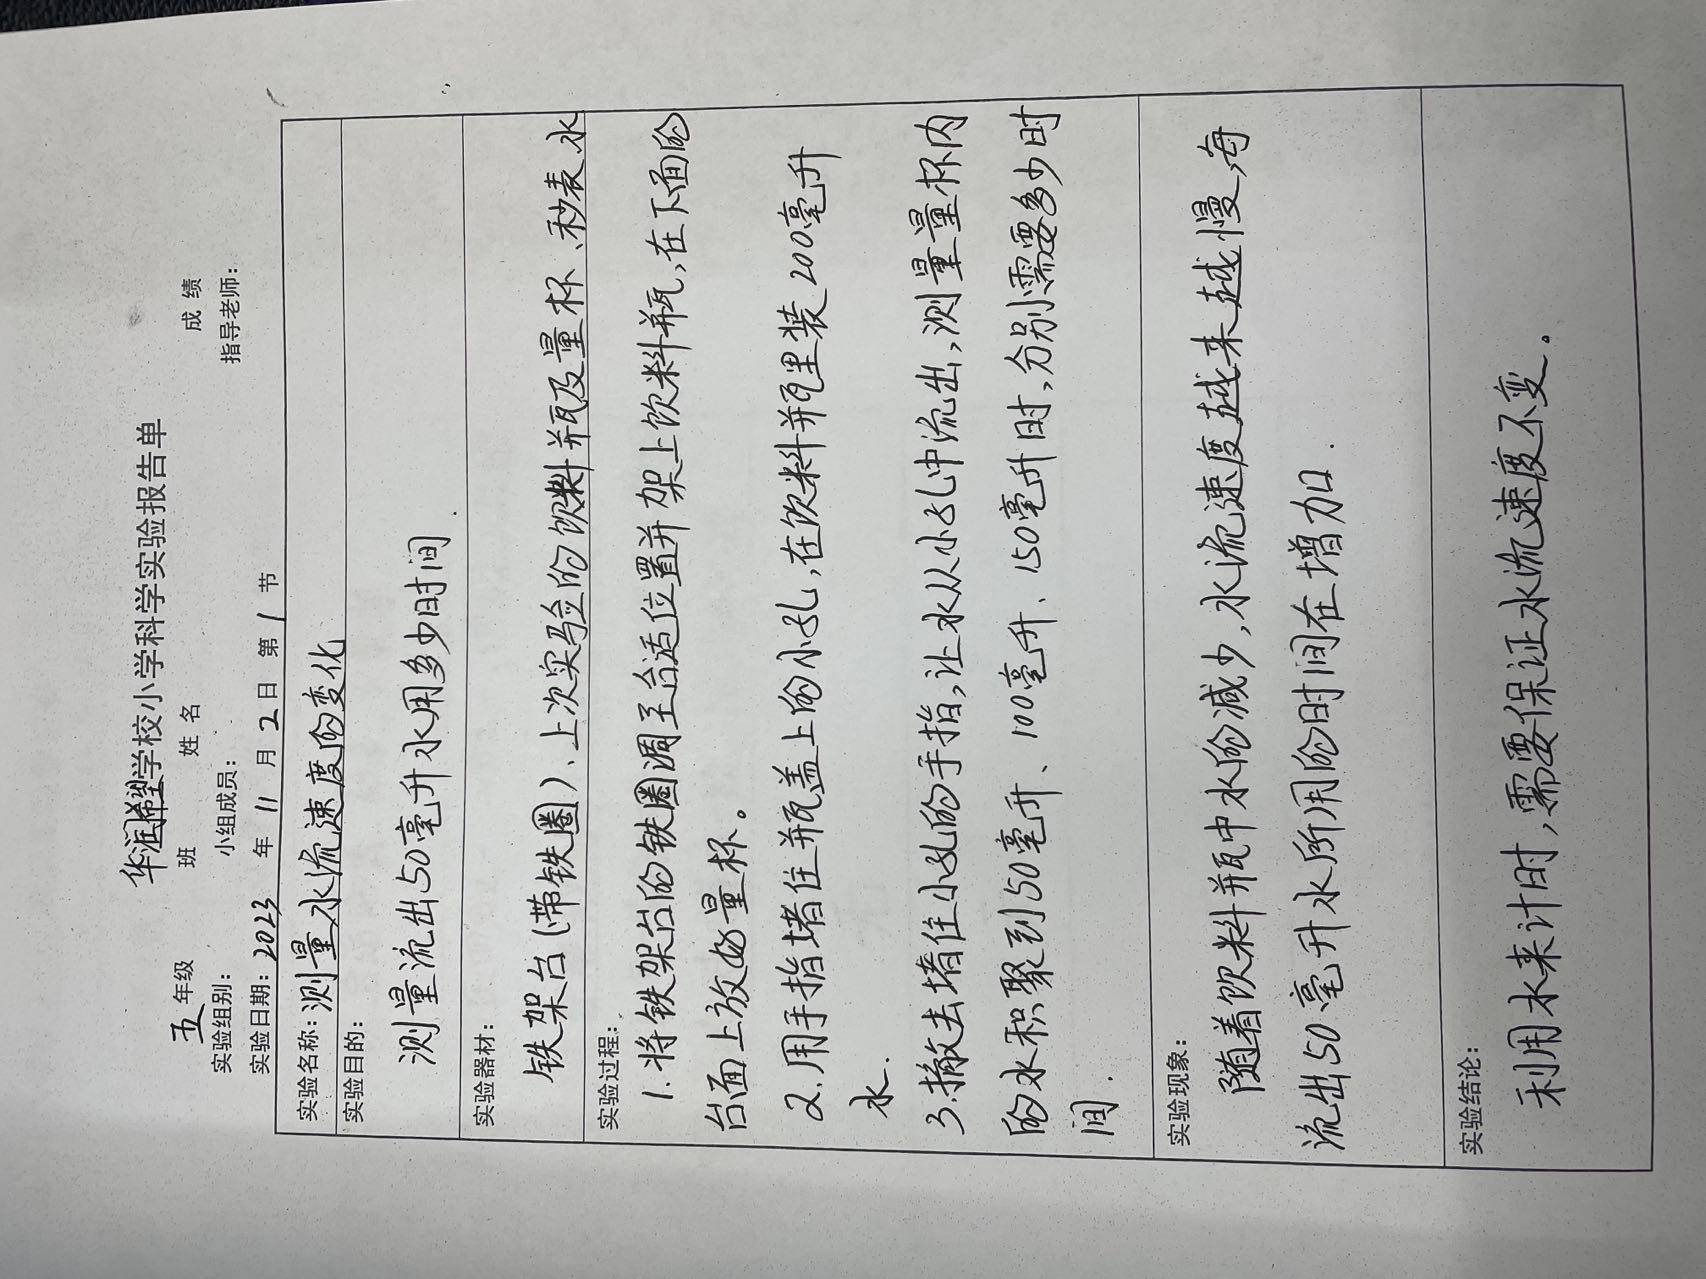 华润希望学校小学科学实验报告单
五 年级 班 姓 名 成 绩
实验组别： 小组成员： 指导老师：
实验日期：2023 年 11 月 2 日 第 1 节
实验名称：测量水流速度的变化
实验目的：
测量流出50毫升水用多少时间
实验器材：
铁架台（带铁圈）、上次实验的饮料瓶及量杯、秒表、水
实验过程：
1.将铁架台的铁圈调至合适位置并架上饮料瓶，在下面的
台面上放好量杯。
2.用手指堵住瓶盖上的小孔，在饮料瓶里装200毫升
水.
3.撤去堵住小孔的手指，让水从小孔中流出，测量量杯内
的水积聚到50毫升、100毫升、150毫升时，分别需要多少时
间.
实验现象：
随着饮料瓶中水的减少，水流速度越来越慢，每
流出50毫升水所用的时间在增加.
实验结论：
利用水来计时，需要保证水流速度不变.